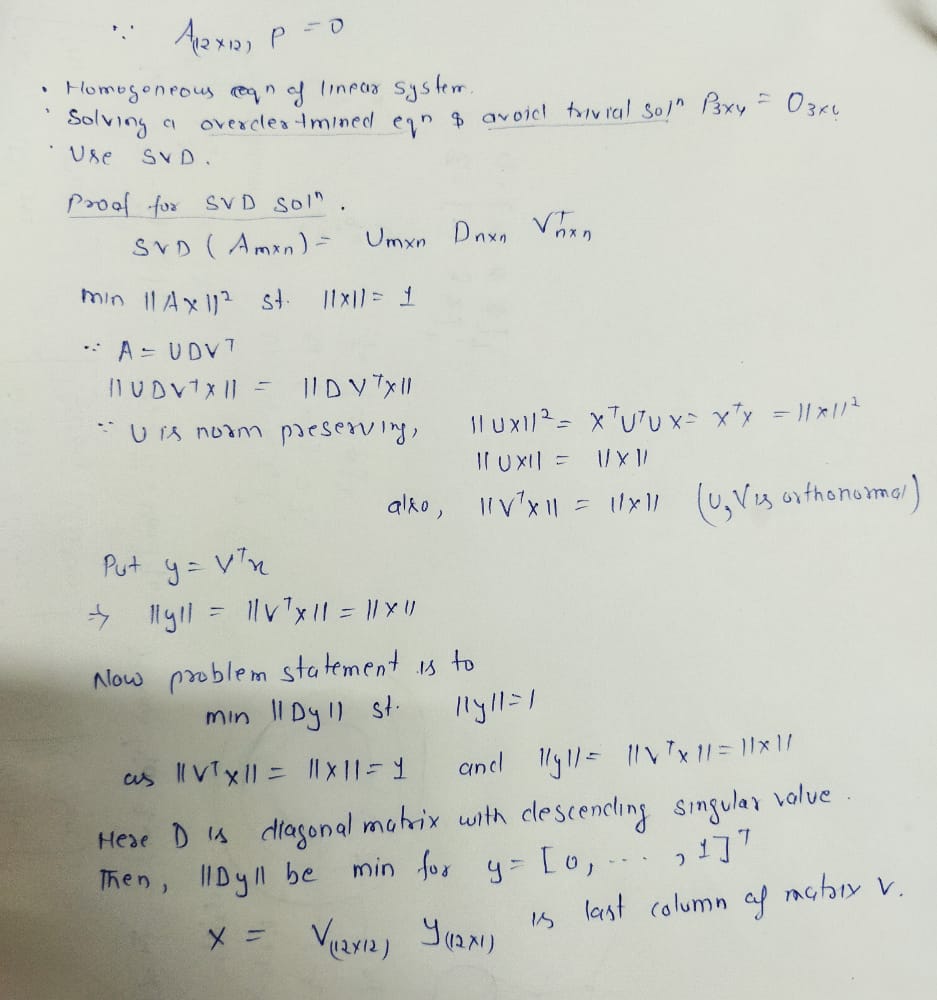 ∵ A(12×12) P = 0
• Homogeneous eqn of linear system.
• Solving a overdertmined eqn & avoid trivial solⁿ P3x4 = O3x4
• Use SVD.
Proof for SVD solⁿ.
SVD (Amxn) = Umxn Dnxn Vᵀnxn
min ||Ax||² st. ||x|| = 1
∵ A = UDVᵀ
||UDVᵀx|| = ||DVᵀx||
∵ U is norm preserving, ||Ux||² = xᵀUᵀUx = xᵀx = ||x||²
||Ux|| = ||x||
also, ||Vᵀx|| = ||x|| (U,V is orthonormal)
Put y = Vᵀx
⇒ ||y|| = ||Vᵀx|| = ||x||
Now problem statement is to
min ||Dy|| st. ||y||=1
as ||Vᵀx|| = ||x|| = 1 and ||y|| = ||Vᵀx|| = ||x||
Here D is diagonal matrix with descending singular value.
Then, ||Dy|| be min for y = [0, ... , 1]ᵀ
x = V(12x12) y(12x1) is last column of matrix V.